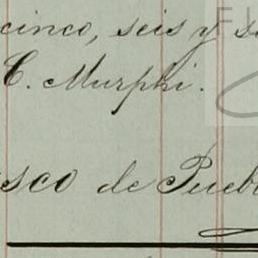 cinco, seis y
C. Murphi.
sco de Puebl